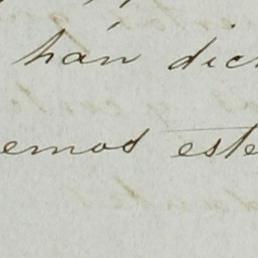 hán dich
emos este